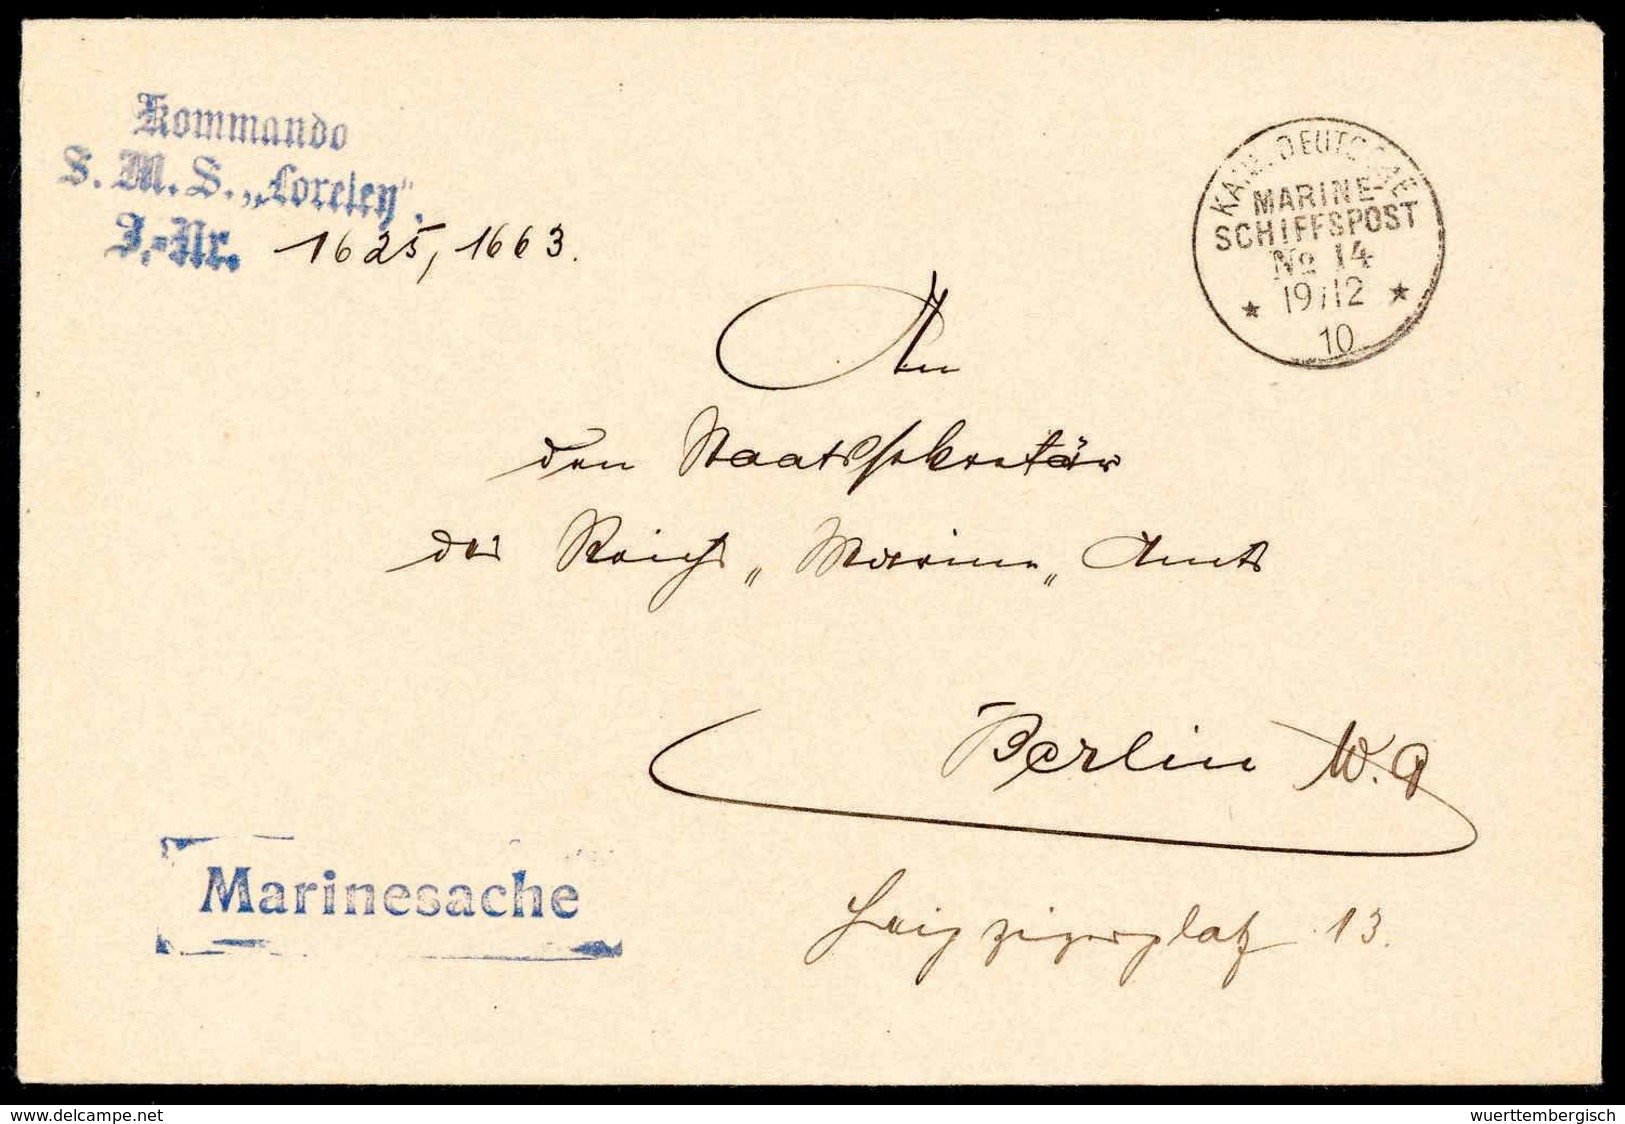 Kommando
S. M. S. „Loreley".
J.-Nr. 1625, 1663.
KAIS. DEUTSCHE
MARINE-
SCHIFFSPOST
No 14
19/12
10
An
den Staatssekretär
des Reichs „Marine„ Amts
Berlin W. 9
Leipzigerplatz 13.
Marinesache
www.delcampe.net
wuerttembergisch